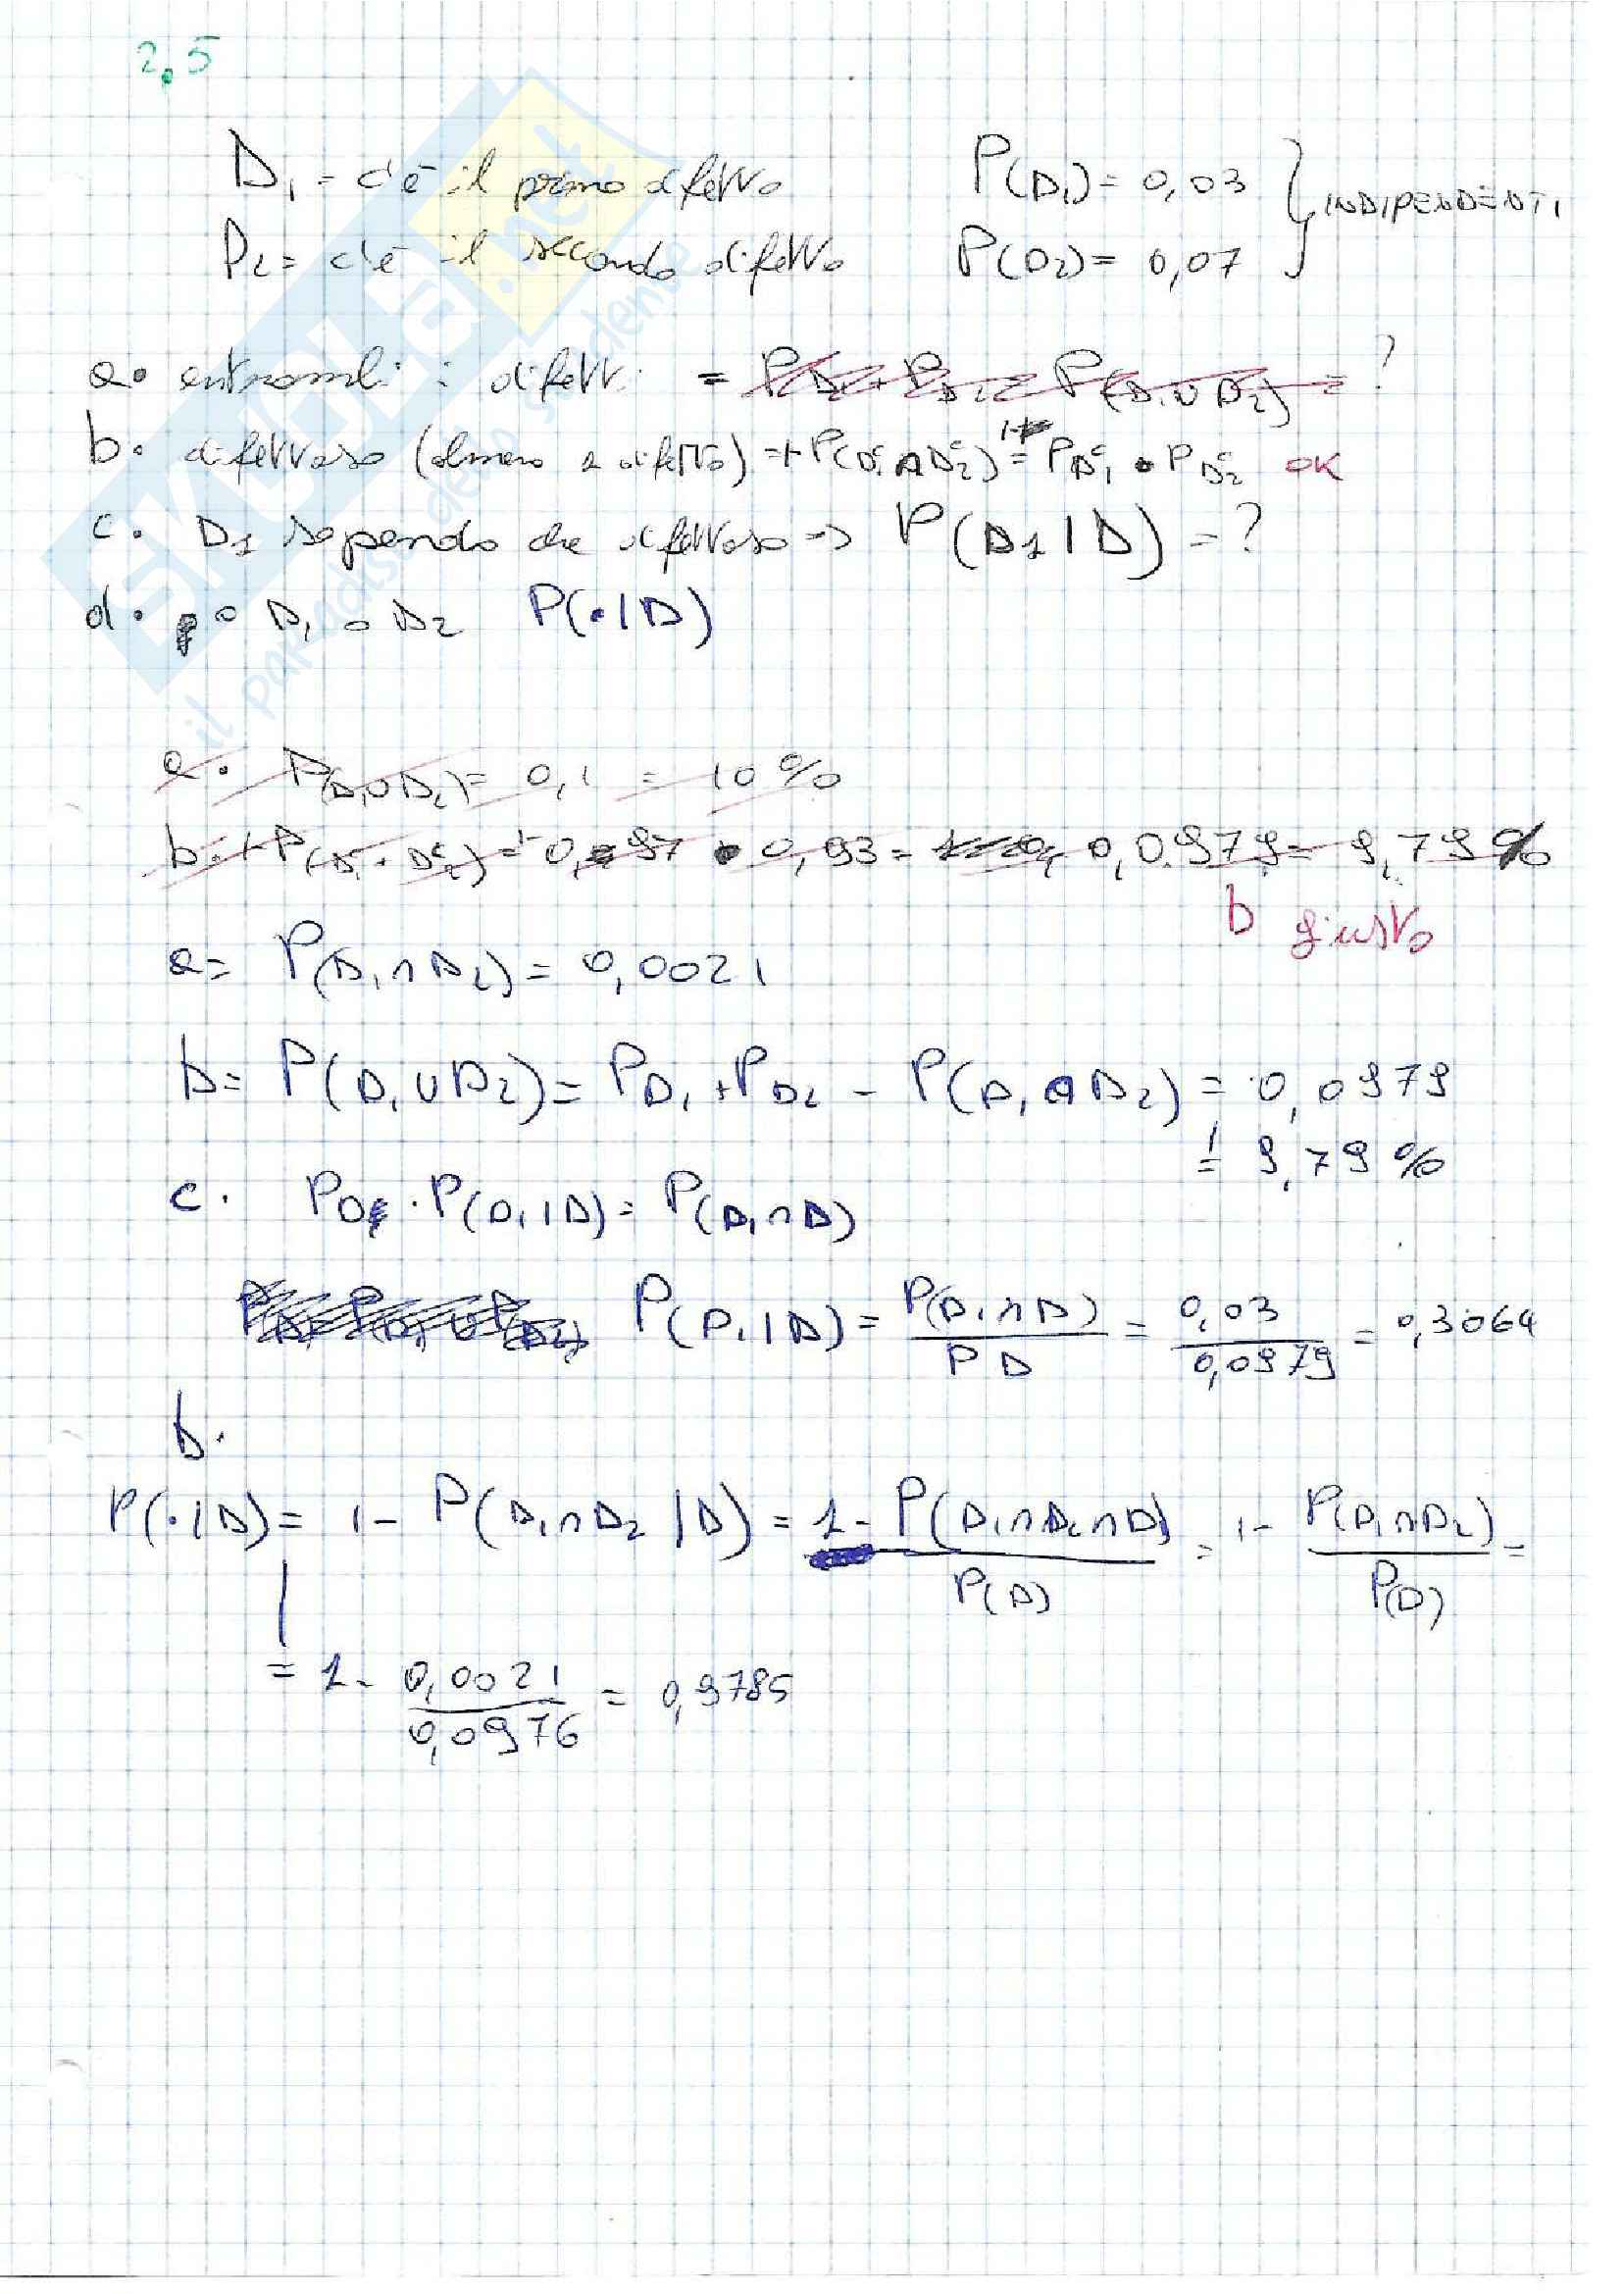 2.5
D₁ = c'è il primo difetto P(D₁) = 0,03 } INDIPENDENTI
D₂ = c'è il secondo difetto P(D₂) = 0,07
a. entrambi i difetti = P_D₁ + P_D₂ = P(D₁∪D₂) = ?
b. difettoso (almeno 1 difetto) = 1-P(D₁ᶜ∩D₂ᶜ) = 1- P_D₁ᶜ • P_D₂ᶜ OK
c. D1 sapendo che difettoso => P(D1|D) = ?
d. o D₁ o D2 P(•|D)
a. P(D₁∪D₂) = 0,1 = 10%
b. 1-P(D₁ᶜ • D₂ᶜ) = 1- 0,97 • 0,93 = 0,0979 = 9,79%
b giusto
a = P(D₁∩D₂) = 0,0021
b = P(D₁∪D₂) = P_D₁ + P_D₂ - P(D₁∩D₂) = 0,0979
= 9,79%
c. P_D · P(D₁|D) = P(D₁∩D)
P(D₁|D) = P(D₁∩D) / PD = 0,03 / 0,0979 = 0,3064
b.
P(•|D) = 1 - P(D₁∩D₂|D) = 1 - P(D₁∩D₂∩D) / P(D) = 1 - P(D₁∩D₂) / P(D) =
= 1 - 0,0021 / 0,0976 = 0,9785
SKUOLA.net
il paradiso dello studente